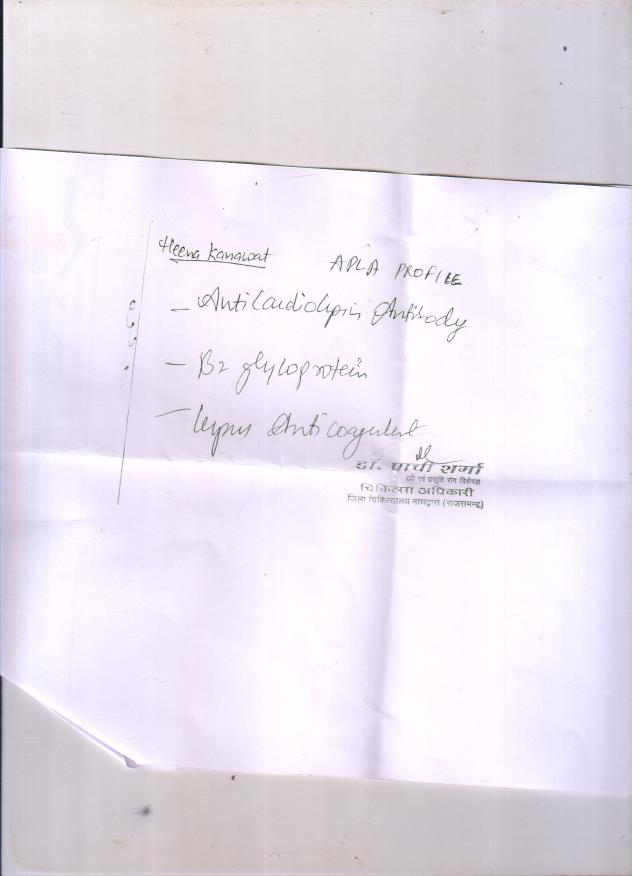 Heena Kanawat
APLA PROFILE
- Anticardiolipin Antibody
- B2 glycoprotein
- lupus Anticoagulent
डॉ. प्राची शर्मा
स्त्री एवं प्रसूति रोग विशेषज्ञ
चिकित्सा अधिकारी
जिला चिकित्सालय नाथद्वारा (राजसमन्द)